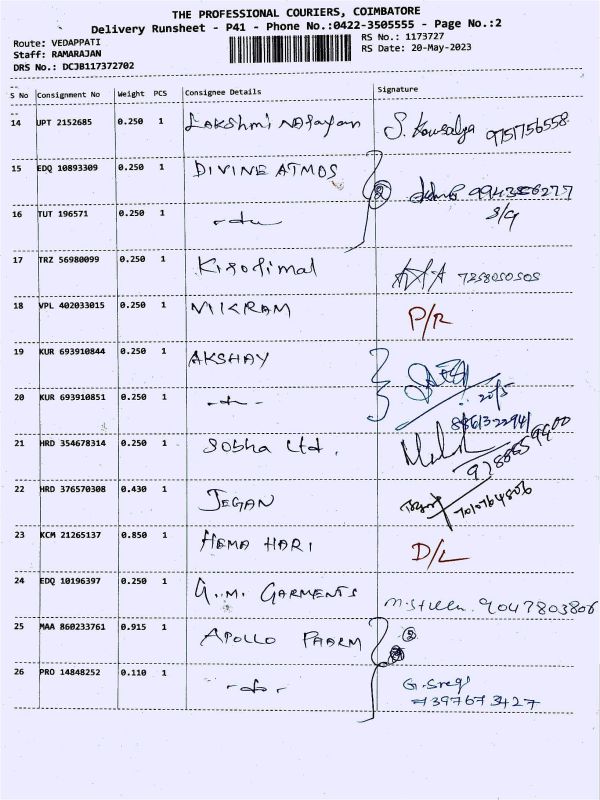 THE PROFESSIONAL COURIERS, COIMBATORE
Delivery Runsheet - P41 - Phone No.:0422-3505555 - Page No.:2
Route: VEDAPPATI
Staff: RAMARAJAN
DRS No.: DCJB117372702
RS No.: 1173727
RS Date: 20-May-2023
S No Consignment No Weight PCS Consignee Details Signature
14 UPT 2152685 0.250 1 Lakshmi Narayan S. Kowsalya 9751756558
15 EDQ 10893309 0.250 1 DIVINE ATMOS
16 TUT 196571 0.250 1 -do-
S/G
17 TRZ 56980099 0.250 1 Kirodimal 7258050505
18 VPL 402033015 0.250 1 VIKRAM P/R
19 KUR 693910844 0.250 1 AKSHAY
20 KUR 693910851 0.250 1 -do- 20/5
8861322941
21 HRD 354678314 0.250 1 Sobha Ltd.
22 HRD 376570308 0.430 1 JEGAN 7010764806
23 KCM 21265137 0.850 1 HEMA HARI D/L
24 EDQ 10196397 0.250 1 G.M. GARMENTS 9047803806
25 MAA 860233761 0.915 1 APOLLO PHARM
26 PRO 14848252 0.110 1 -do-
7397673427